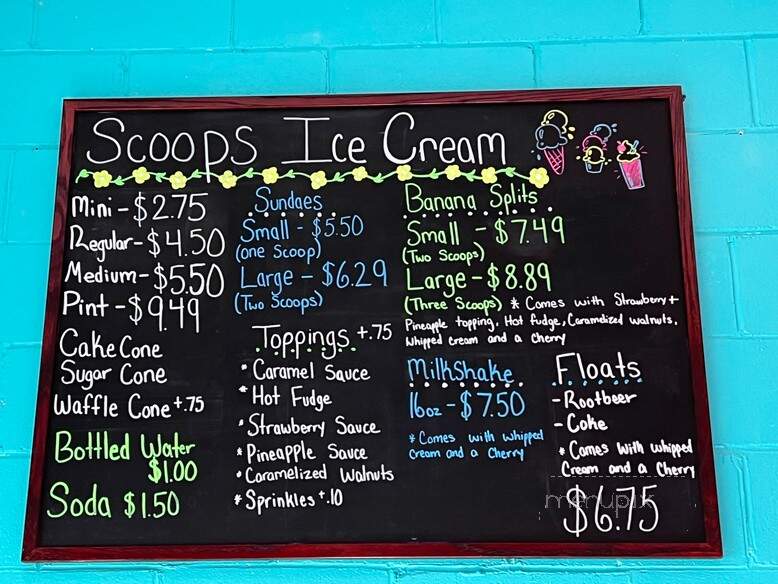 Scoops Ice Cream
Mini - $2.75
Regular - $4.50
Medium - $5.50
Pint - $9.49
Cake Cone
Sugar Cone
Waffle Cone +.75
Bottled Water
$1.00
Soda $1.50
Sundaes
Small - $5.50
(one Scoop)
Large - $6.29
(Two Scoops)
Toppings +.75
* Caramel Sauce
* Hot Fudge
* Strawberry Sauce
* Pineapple Sauce
* Caramelized Walnuts
* Sprinkles +.10
Banana Splits
Small - $7.49
(Two Scoops)
Large - $8.89
(Three Scoops) * Comes with Strawberry +
Pineapple topping, Hot fudge, Caramelized walnuts,
Whipped cream and a Cherry
Milkshake
16oz - $7.50
* Comes with whipped
Cream and a Cherry
Floats
- Rootbeer
- Coke
* Comes with whipped
Cream and a Cherry
$6.75
menupix